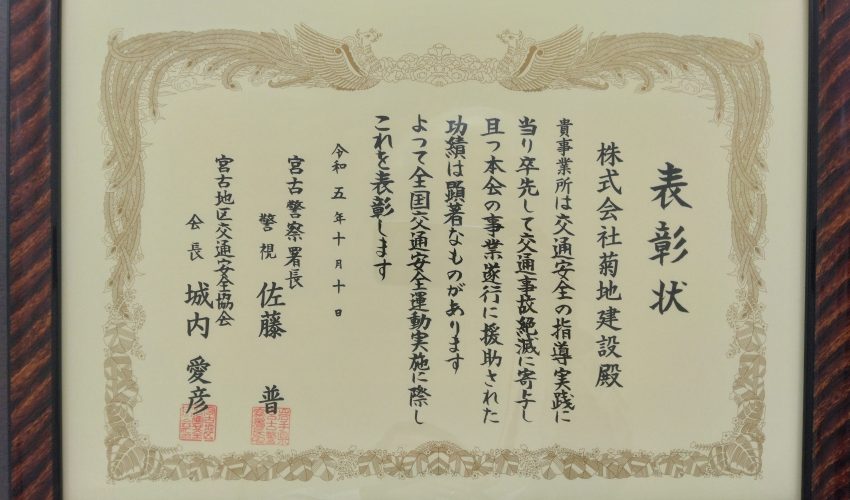 表彰状
株式会社菊地建設殿
貴事業所は交通安全の指導実践に
当り卒先して交通事故絶滅に寄与し
且つ本会の事業遂行に援助された
功績は顕著なものがあります
よつて全国交通安全運動実施に際し
これを表彰します
令和五年十月十日
宮古警察署長
警視 佐藤 普
宮古地区交通安全協会
会長 城内愛彦